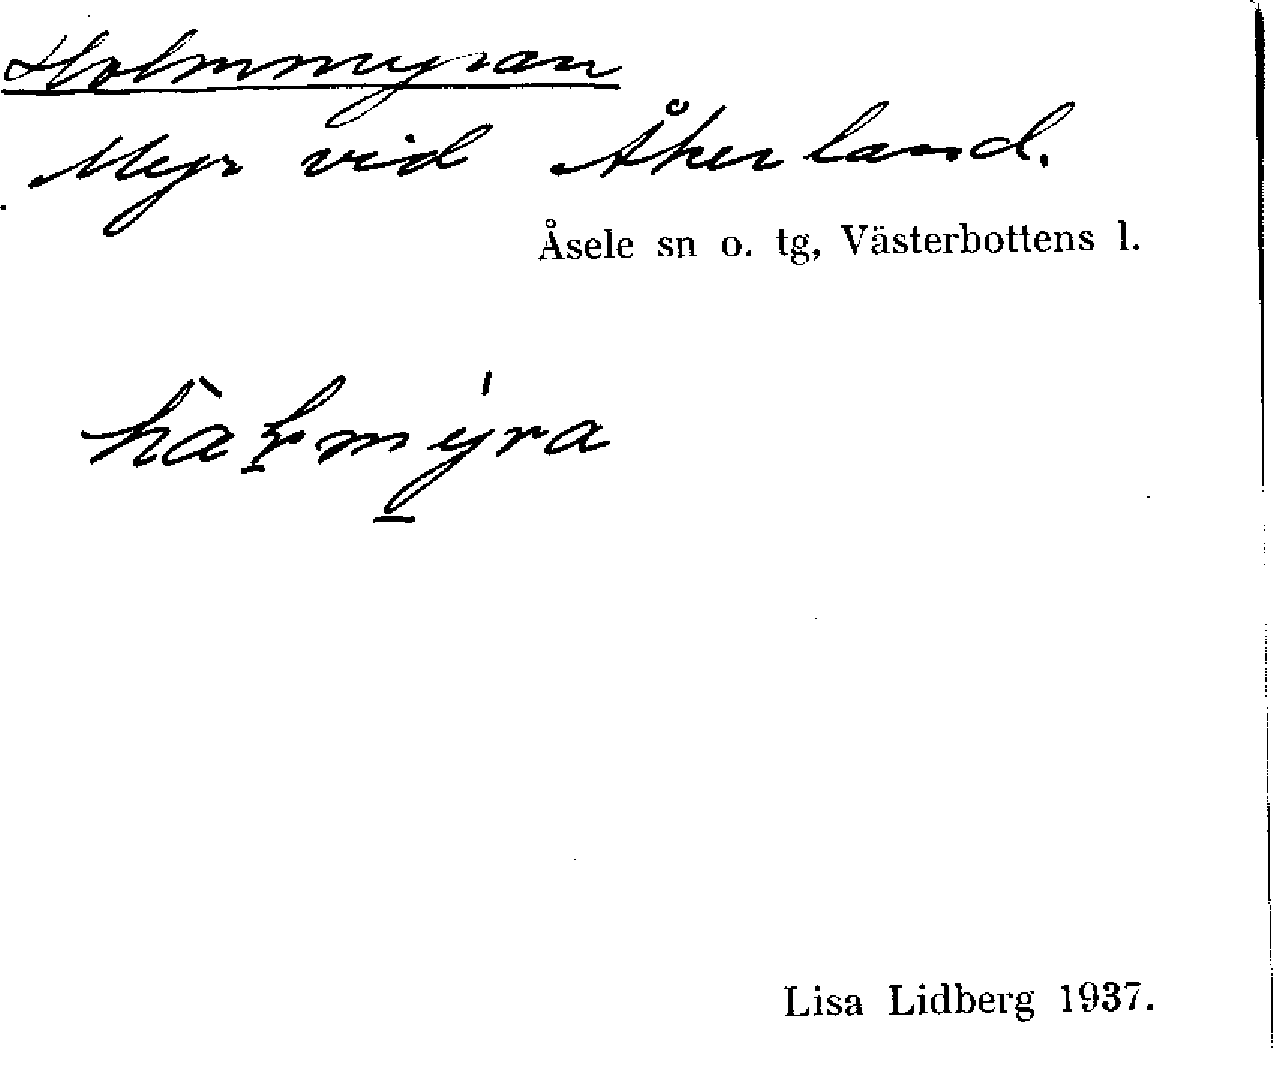 Holmmyran
Myr vid Åkerland.
Åsele sn o. tg, Västerbottens l.
Lisa Lidberg 1937.